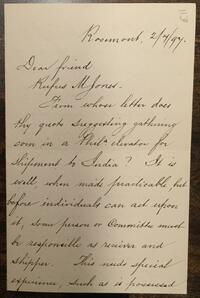 Rosemont, 2/7/97.
Dear friend
Rufus M Jones.
From whose letter does
thy quote suggesting gathering
corn in a Phila elevator for
shipment to India? It is
well, when made practicable, but
before individuals can act upon
it, some person or Committee must
be responsible as receiver and
shipper. This needs special
experience, such as is possessed